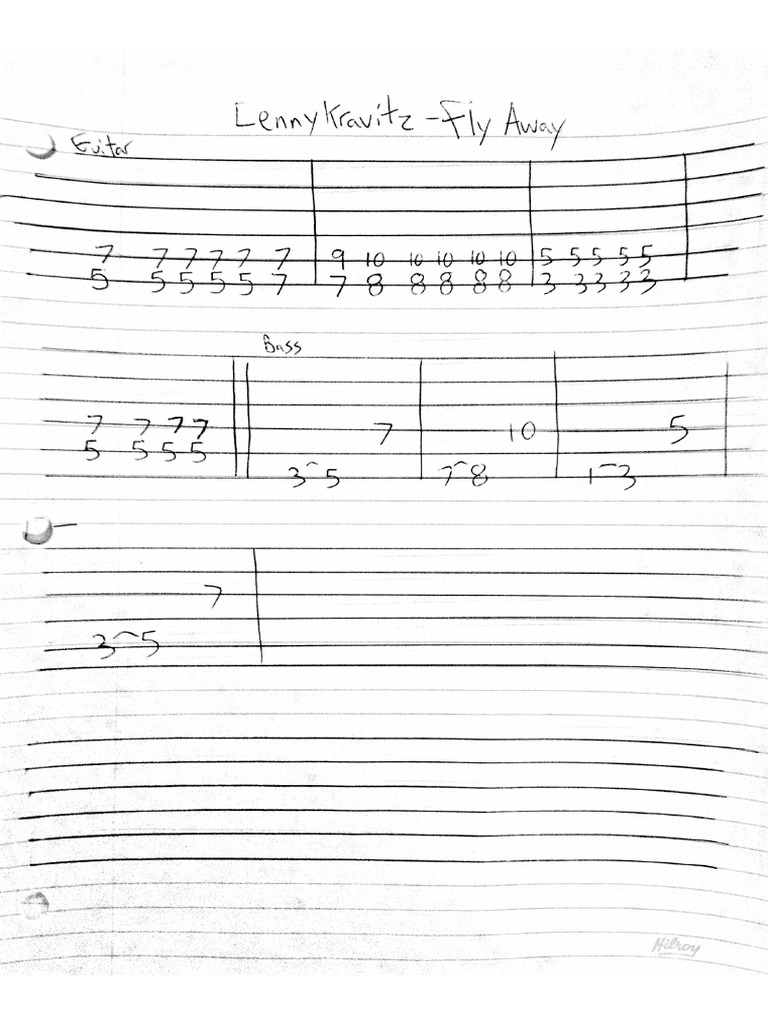 Lenny Kravitz - Fly Away
Guitar
7 7 7 7 7 7 9 10 10 10 10 10 5 5 5 5 5
5 5 5 5 5 7 7 8 8 8 8 8 3 3 3 3 3
Bass
7 7 7 7 7 10 5
5 5 5 5
3⁀5 7⁀8 1⁀3
7
3⁀5
Hilroy